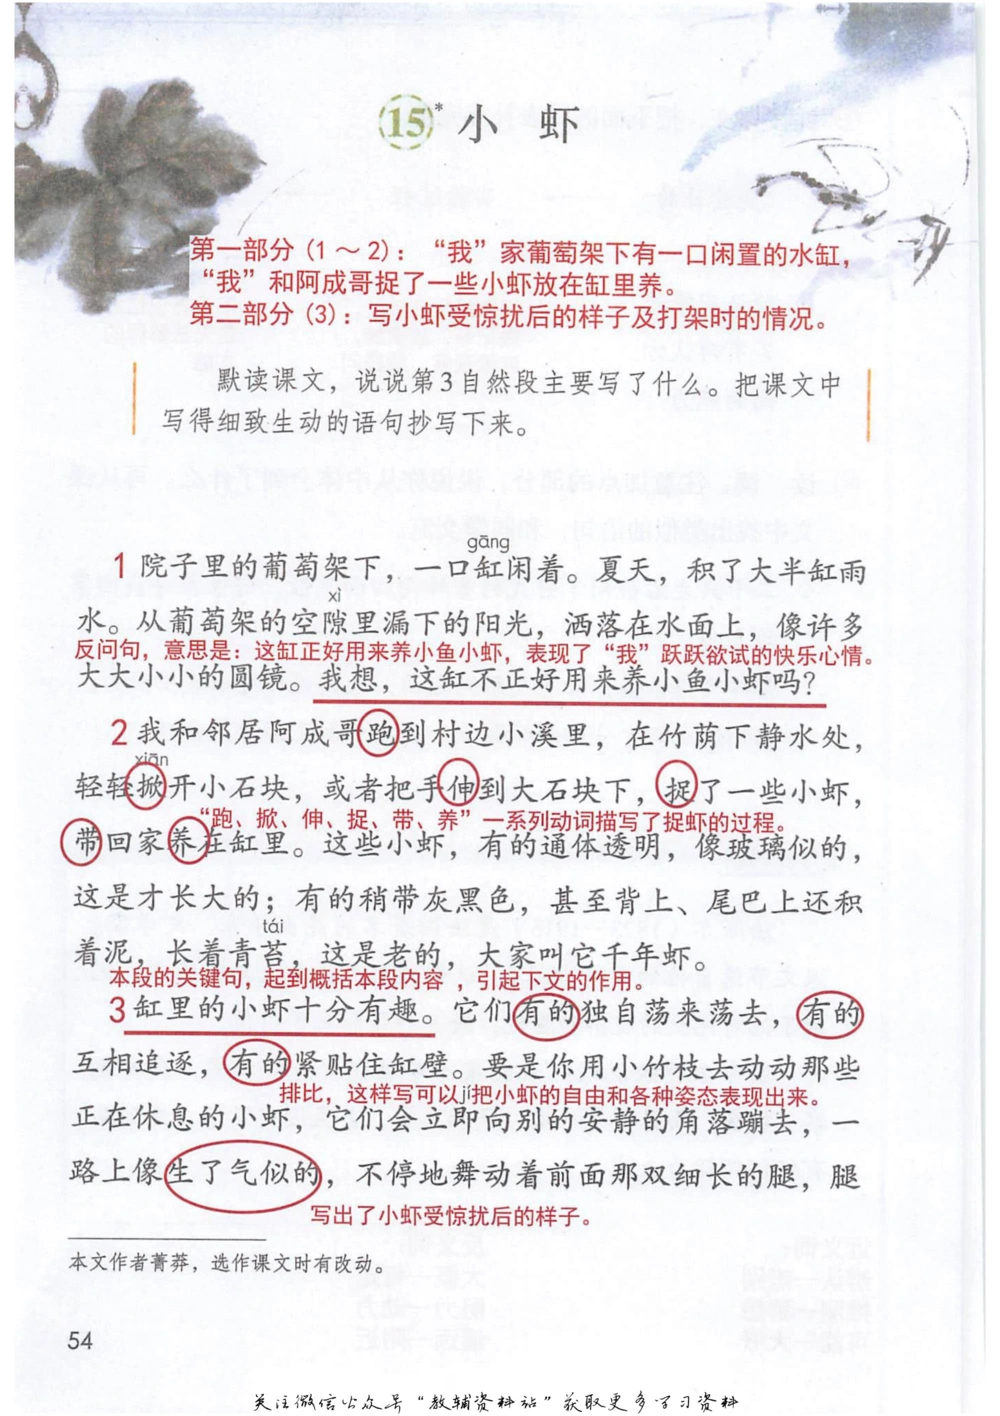 15* 小 虾
第一部分（1～2）：“我”家葡萄架下有一口闲置的水缸，
“我”和阿成哥捉了一些小虾放在缸里养。
第二部分（3）：写小虾受惊扰后的样子及打架时的情况。
默读课文，说说第3自然段主要写了什么。把课文中
写得细致生动的语句抄写下来。
gāng
1 院子里的葡萄架下，一口缸闲着。夏天，积了大半缸雨
xì
水。从葡萄架的空隙里漏下的阳光，洒落在水面上，像许多
反问句，意思是：这缸正好用来养小鱼小虾，表现了“我”跃跃欲试的快乐心情。
大大小小的圆镜。我想，这缸不正好用来养小鱼小虾吗？
2 我和邻居阿成哥跑到村边小溪里，在竹荫下静水处，
xiān
轻轻掀开小石块，或者把手伸到大石块下，捉了一些小虾，
“跑、掀、伸、捉、带、养”一系列动词描写了捉虾的过程。
带回家养在缸里。这些小虾，有的通体透明，像玻璃似的，
这是才长大的；有的稍带灰黑色，甚至背上、尾巴上还积
tái
着泥，长着青苔，这是老的，大家叫它千年虾。
本段的关键句，起到概括本段内容，引起下文的作用。
3 缸里的小虾十分有趣。它们有的独自荡来荡去，有的
互相追逐，有的紧贴住缸壁。要是你用小竹枝去动动那些
排比，这样写可以把小虾的自由和各种姿态表现出来。
jí
正在休息的小虾，它们会立即向别的安静的角落蹦去，一
路上像生了气似的，不停地舞动着前面那双细长的腿，腿
写出了小虾受惊扰后的样子。
本文作者菁莽，选作课文时有改动。
54
关注微信公众号“教辅资料站”获取更多学习资料